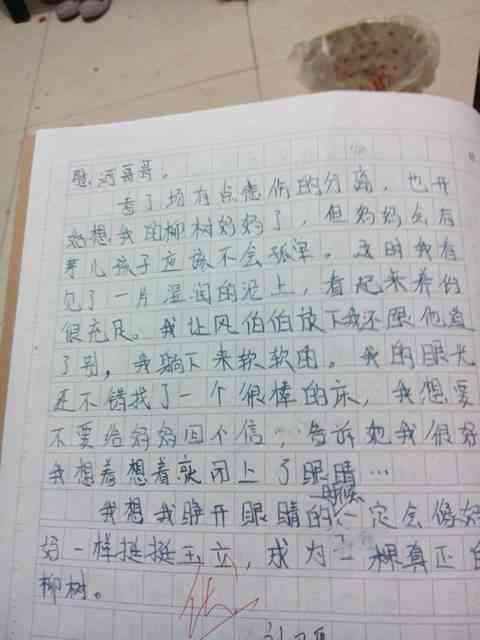 愁河哥哥。
看了场有点悲伤的分离，也开
始想我的柳树妈妈了，但妈妈会有
等儿孩子应该不会孤单。这时我看
见了一片湿润的泥土，看起来养份
很充足。我让风伯伯放下我还跟他道
了别，我躺下来软软的。我的眼光
还不错找了一个很棒的床，我想要
不要给妈妈回个信，告诉她我很好
我想着想着就闭上了眼睛…
我想我睁开眼睛的时候一定会像妈
妈一样挺挺玉立，成为一棵真正的
柳树。